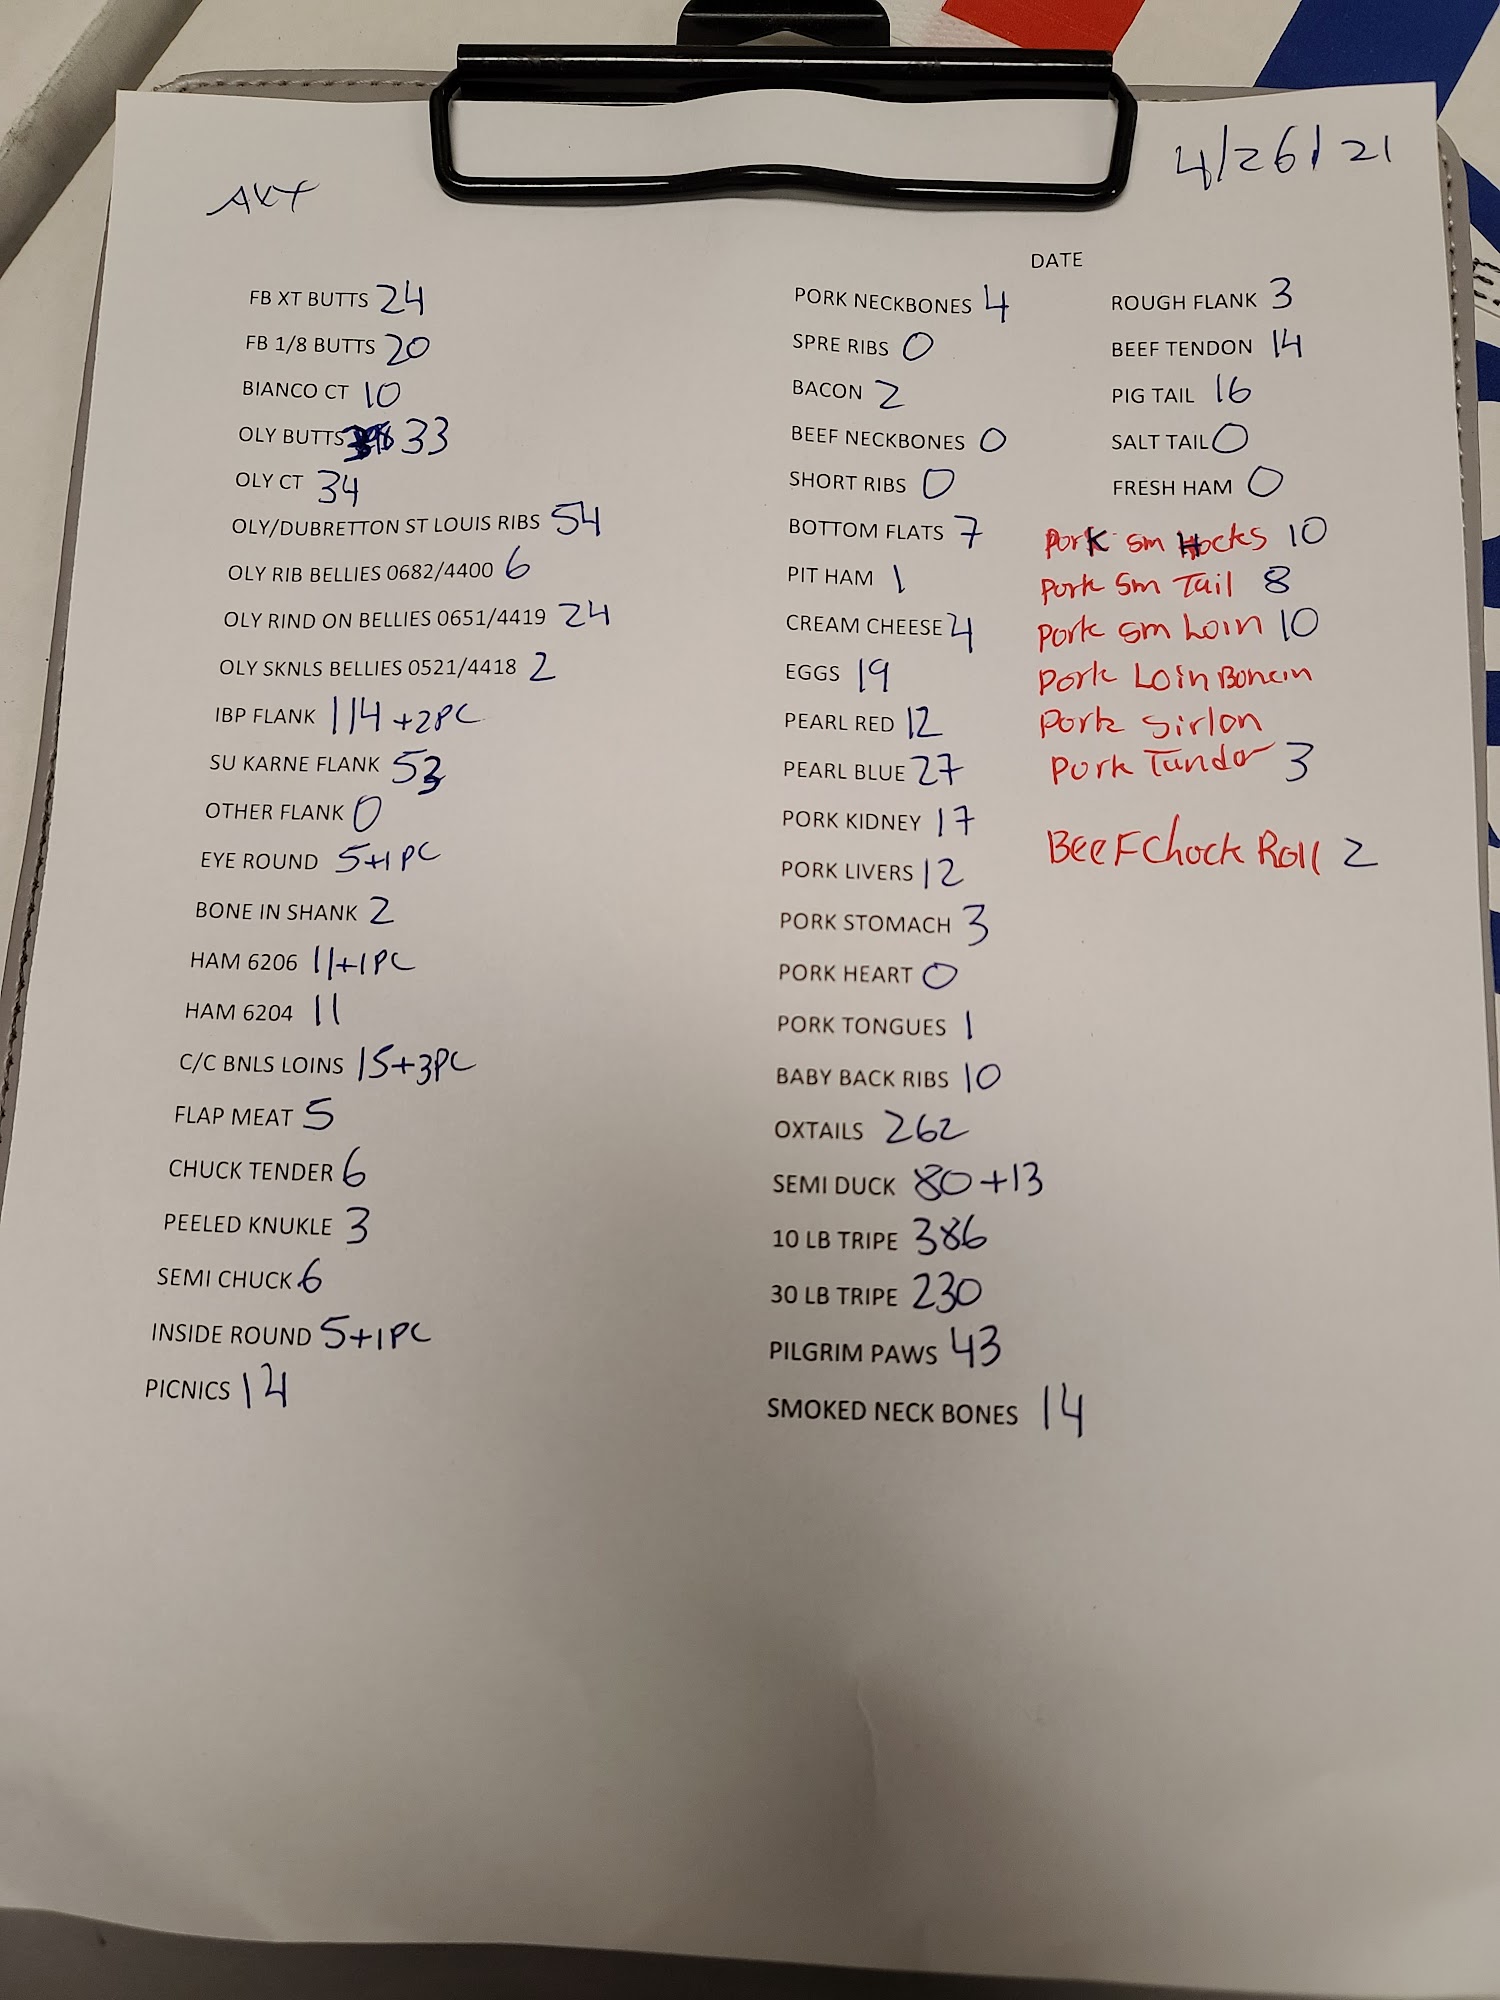 4/26/21
AXT
DATE
FB XT BUTTS 24
FB 1/8 BUTTS 20
BIANCO CT 10
OLY BUTTS 33
OLY CT 34
OLY/DUBRETTON ST LOUIS RIBS 54
OLY RIB BELLIES 0682/4400 6
OLY RIND ON BELLIES 0651/4419 24
OLY SKNLS BELLIES 0521/4418 2
IBP FLANK 114 +2PC
SU KARNE FLANK 53
OTHER FLANK 0
EYE ROUND 5+1PC
BONE IN SHANK 2
HAM 6206 11+1PC
HAM 6204 11
C/C BNLS LOINS 15+3PC
FLAP MEAT 5
CHUCK TENDER 6
PEELED KNUKLE 3
SEMI CHUCK 6
INSIDE ROUND 5+1PC
PICNICS 14
PORK NECKBONES 4
SPRE RIBS 0
BACON 2
BEEF NECKBONES 0
SHORT RIBS 0
BOTTOM FLATS 7
PIT HAM 1
CREAM CHEESE 4
EGGS 19
PEARL RED 12
PEARL BLUE 27
PORK KIDNEY 17
PORK LIVERS 12
PORK STOMACH 3
PORK HEART 0
PORK TONGUES 1
BABY BACK RIBS 10
OXTAILS 262
SEMI DUCK 80+13
10 LB TRIPE 386
30 LB TRIPE 230
PILGRIM PAWS 43
SMOKED NECK BONES 14
ROUGH FLANK 3
BEEF TENDON 14
PIG TAIL 16
SALT TAIL 0
FRESH HAM 0
Pork sm Hocks 10
Pork Sm Tail 8
Pork sm Loin 10
Pork Loin Bonein
Pork Sirlon
Pork Tundor 3
BeeF Chock Roll 2